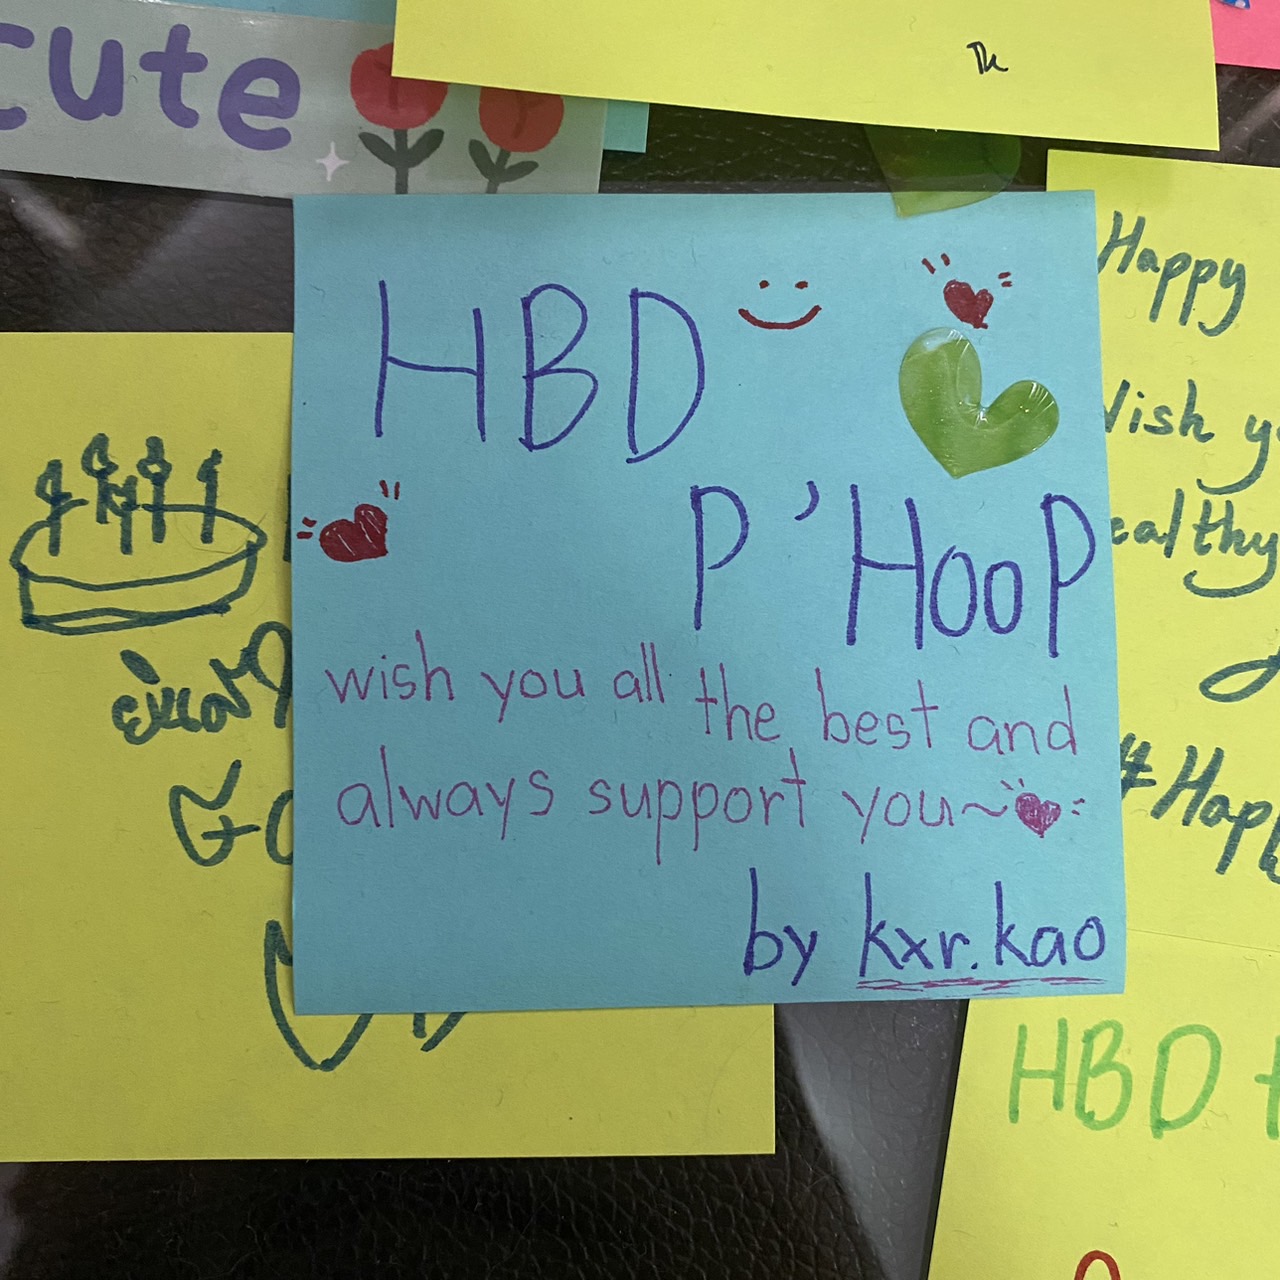 cute
HBD
P'HOOP
wish you all the best and
always support you~
by kxr.kao
Happy
ealthy
#Hap
HBD